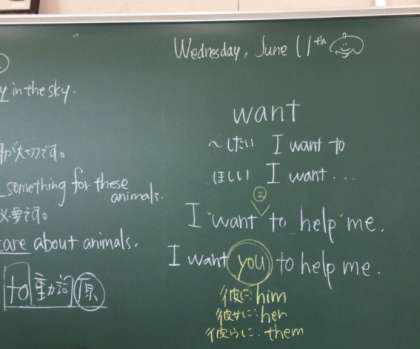 Wednesday, June 11th
y in the sky.
want
〜したい I want to
が大切です。
ほしい I want ...
something for these
animals.
必要です。
②
I want to help me.
care about animals.
I want you to help me.
to 動詞 原
彼に: him
彼女に: her
彼らに: them